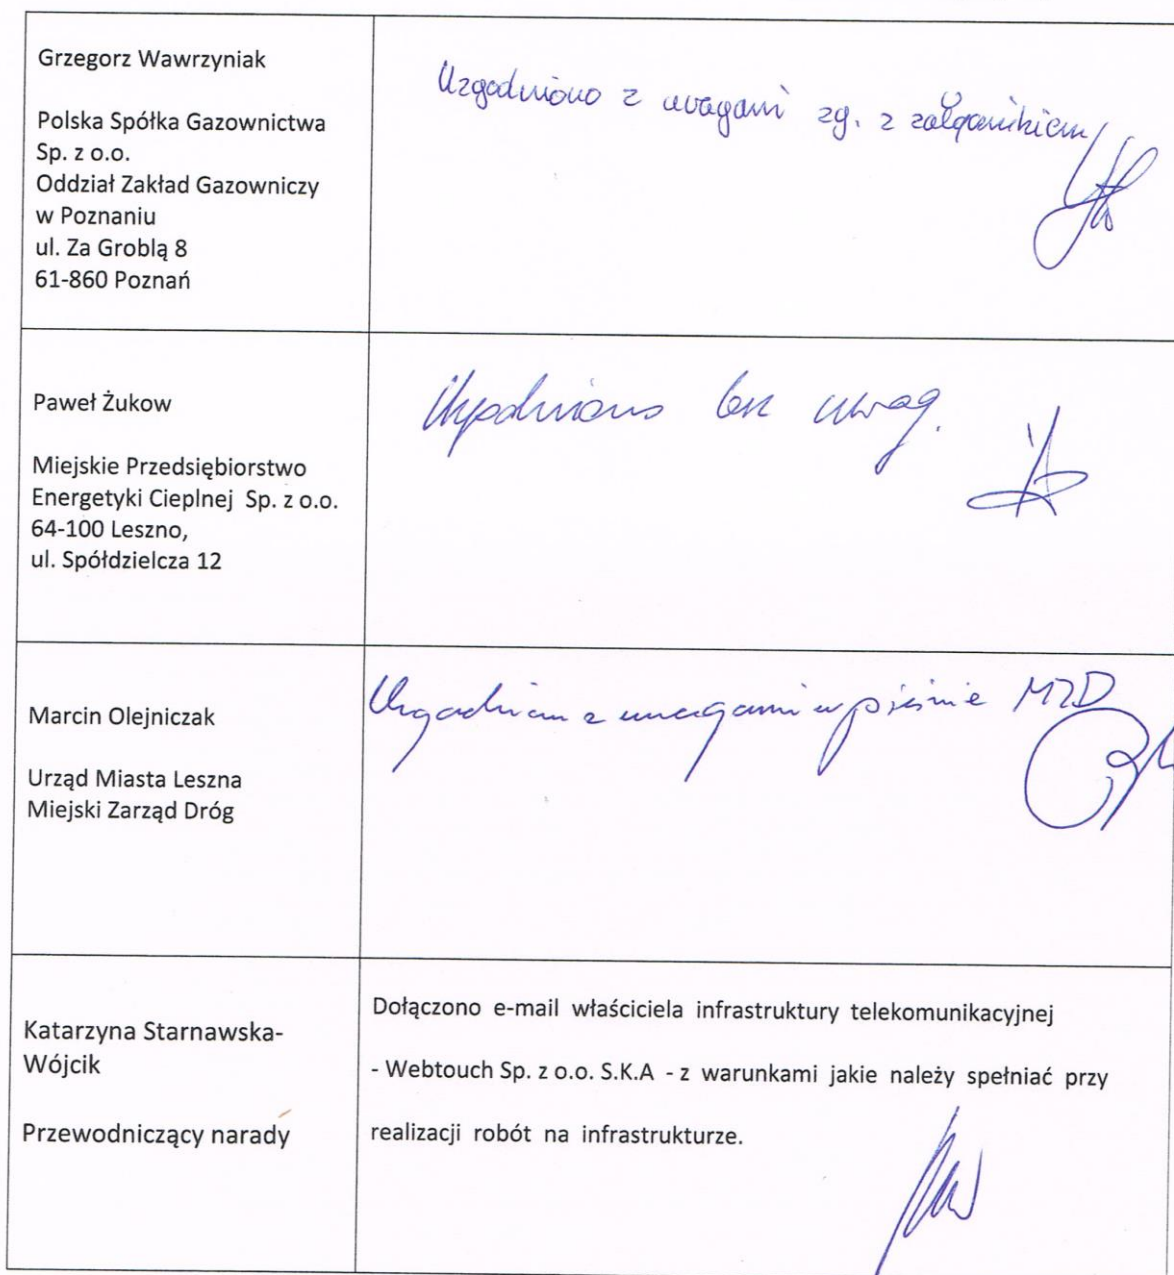 Grzegorz Wawrzyniak
Polska Spółka Gazownictwa
Sp. z o.o.
Oddział Zakład Gazowniczy
w Poznaniu
ul. Za Groblą 8
61-860 Poznań
Uzgodniono z uwagami zg. z załącznikiem
Paweł Żukow
Miejskie Przedsiębiorstwo
Energetyki Cieplnej Sp. z o.o.
64-100 Leszno,
ul. Spółdzielcza 12
Uzgodniono bez uwag.
Marcin Olejniczak
Urząd Miasta Leszna
Miejski Zarząd Dróg
Uzgadniam z uwagami w piśmie MZD
Katarzyna Starnawska-
Wójcik
Przewodniczący narady
Dołączono e-mail właściciela infrastruktury telekomunikacyjnej
- Webtouch Sp. z o.o. S.K.A - z warunkami jakie należy spełniać przy
realizacji robót na infrastrukturze.